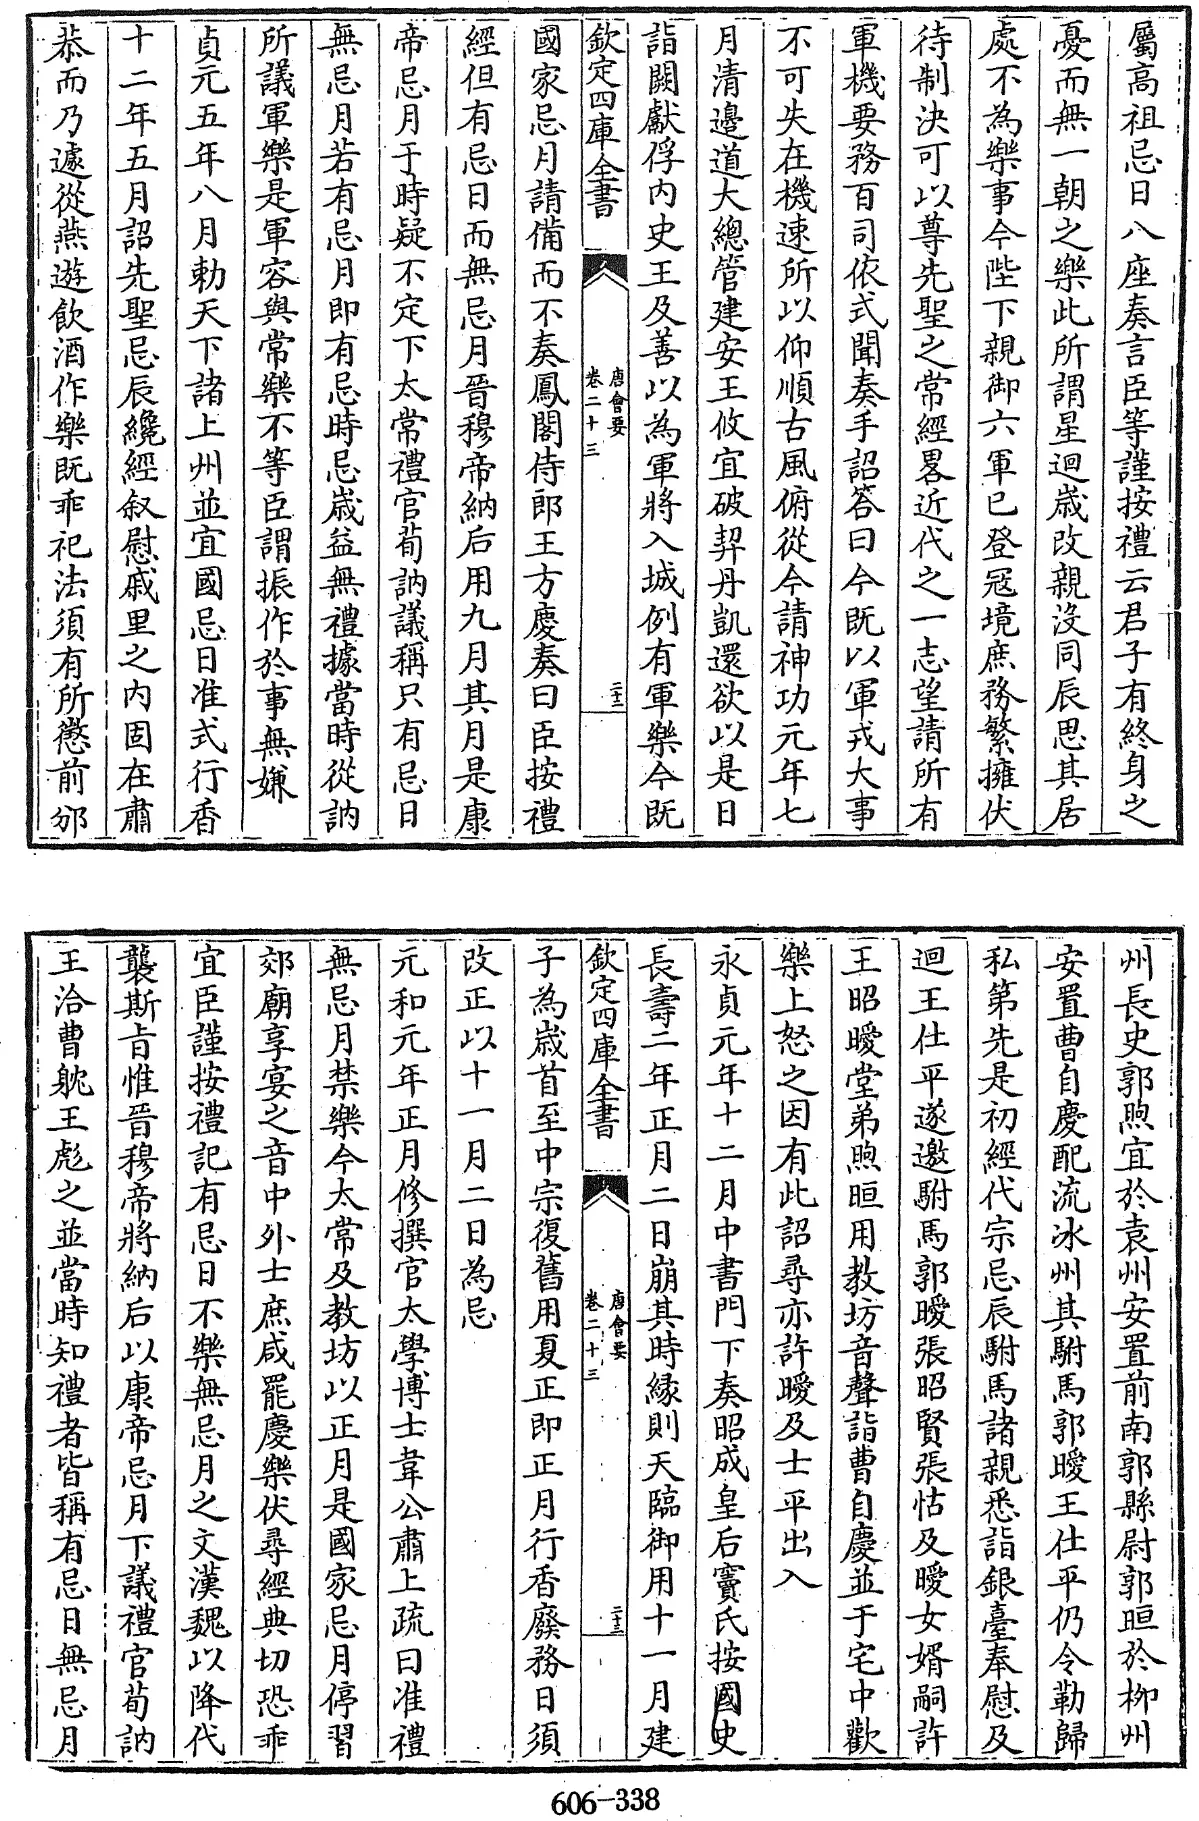 屬高祖忌日八座奏言臣等謹按禮云君子有終身之
憂而無一朝之樂此所謂星迴歲改親沒同辰思其居
處不為樂事今陛下親御六軍已登冦境庶務繁擁伏
待制決可以尊先聖之常經畧近代之一志望請所有
軍機要務百司依式聞奏手詔答曰今既以軍戎大事
不可失在機速所以仰順古風俯從今請神功元年七
月清邊道大總管建安王攸宜破契丹凱還欲以是日
詣闕獻俘内史王及善以為軍將入城例有軍樂今既
欽定四庫全書
唐會要
卷二十三
二十三
國家忌月請備而不奏鳳閣侍郎王方慶奏曰臣按禮
經但有忌日而無忌月晉穆帝納后用九月其月是康
帝忌月于時疑不定下太常禮官荀訥議稱只有忌日
無忌月若有忌月即有忌時忌歲益無禮據當時從訥
所議軍樂是軍容與常樂不等臣謂振作於事無嫌
貞元五年八月勅天下諸上州並宜國忌日准式行香
十二年五月詔先聖忌辰纔經叙慰戚里之内固在肅
恭而乃遽從燕遊飲酒作樂既乖祀法須有所懲前邠
州長史郭煦宜於袁州安置前南郭縣尉郭晅於柳州
安置曹自慶配流氷州其駙馬郭曖王仕平仍令勒歸
私第先是初經代宗忌辰駙馬諸親悉詣銀臺奉慰及
迴王仕平遂邀駙馬郭曖張昭賢張怙及曖女婿嗣許
王昭曖堂弟煦晅用教坊音聲詣曹自慶並于宅中歡
樂上怒之因有此詔尋亦許曖及士平出入
永貞元年十二月中書門下奏昭成皇后竇氏按國史
長壽二年正月二日崩其時緣則天臨御用十一月建
欽定四庫全書
唐會要
卷二十三
二十三
子為歲首至中宗復舊用夏正即正月行香廢務日須
改正以十一月二日為忌
元和元年正月修撰官太學博士韋公肅上疏曰准禮
無忌月禁樂今太常及教坊以正月是國家忌月停習
郊廟享宴之音中外士庶咸罷慶樂伏尋經典切恐乖
宜臣謹按禮記有忌日不樂無忌月之文漢魏以降代
襲斯旨惟晉穆帝將納后以康帝忌月下議禮官荀訥
王洽曹躭王彪之並當時知禮者皆稱有忌日無忌月
606-338